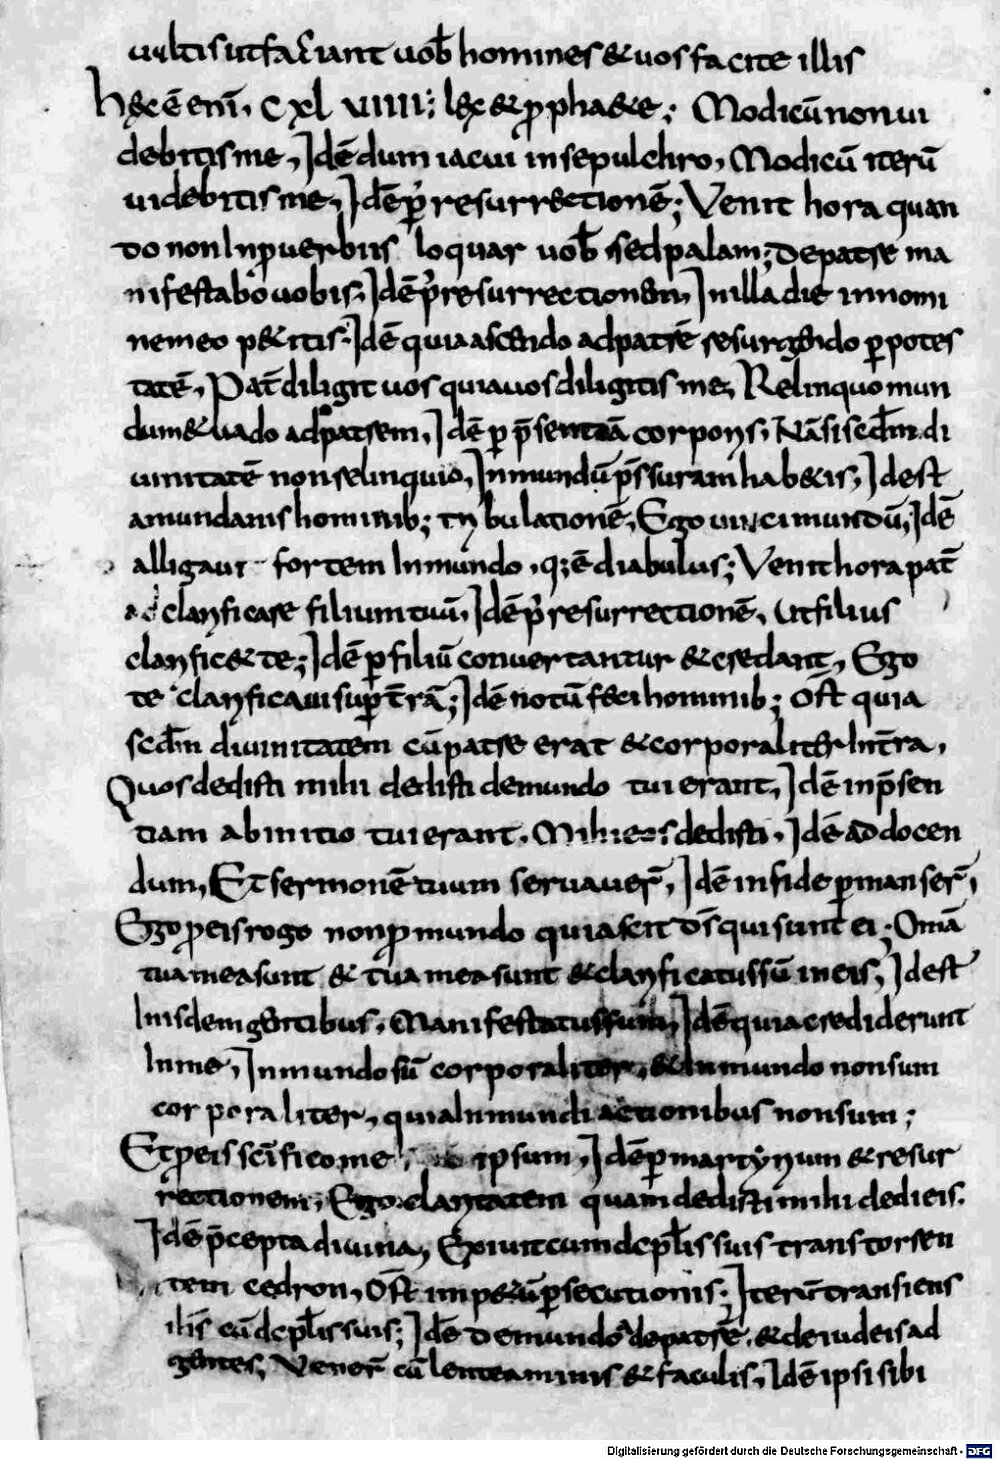 uultis ut faciant uob̄ homines & uos facite illis
h&c ē eni᷄. C xl uiiii; lex & ꝓpha&e; Modicū non ui
debitis me, Id ē dum iacui in sepulchro, Modicū iterū
uidebitis me, Id ē p̓ resurrectionē; Venit hora quan
do non In ꝓuerbiis loquar uob̄ sed palam; de patre ma
nifestabo uobis, Id ē p̓ resurrectionem, In illa die in nomi
ne meo p&itis; Id ē quia ascendo ad patrē resurgendo ꝑ potes
tatē, Pat̄ diligit uos quia uos diligitis me, Relinquo mun
dum & uado ad patrem, Id ē ꝑ p̄sentiā corporis, Nā si scd̄m di
uinitatē non relinquio, In mundū p̄ssuram hab&is, Id est
a mundanis hominib; tribulationē, Ego uinci mundū, Id ē
alligaui fortem In mundo, q; ē diabulus; Venit hora pat̄
clarificare filium tuū, Id ē p̓ resurrectionē, Ut filius
clarific& te; Id ē ꝑ filiū conuertantur & credant, Ego
te clarificaui suꝑ t̄rā; Id ē notū feci hominib; Ost̄ quia
scd̄m diuinitatem cū patre erat & corporaliter In t̄ra,
Quos dedisti mihi dedisti de mundo tui erant, Id ē in p̄sen
tiam ab initio tui erant. Mihi eos dedisti, Id ē ad docen
dum, Et sermonē tuum seruauer̄, Id ē in fide ꝑmanser̄,
Ego ꝓ eis rogo non ꝓ mundo quia scit d̄s qui sunt ei; Omā
tua mea sunt & tua mea sunt & clarificatus sū in eis, Id est
In isdem gentibus, Manifestatus sum, Id ē quia crediderunt
In me, In mundo sū corporaliter, & In mundo non sum
corporaliter, quia In mundi actionibus non sum;
Et ꝓ eis sc̄ifico me ipsum, Id ē ꝑ martyrium & resur
rectionem; Ego claritatem quam dedisti mihi dedi eis.
Id ē p̄cepta diuina, Exiuit cum dcpl̄is suis trans torren
tem cedron, Ost̄ imp&ū ꝑsecutionis; Iterū transiens
cū dcpl̄is suis; Id ē de mundo ad patrē, & de iudeis ad
gentes, Vener̄ cū lenteaminis & faculis, Id ē ipsi sibi
Digitalisierung gefördert durch die Deutsche Forschungsgemeinschaft - DFG